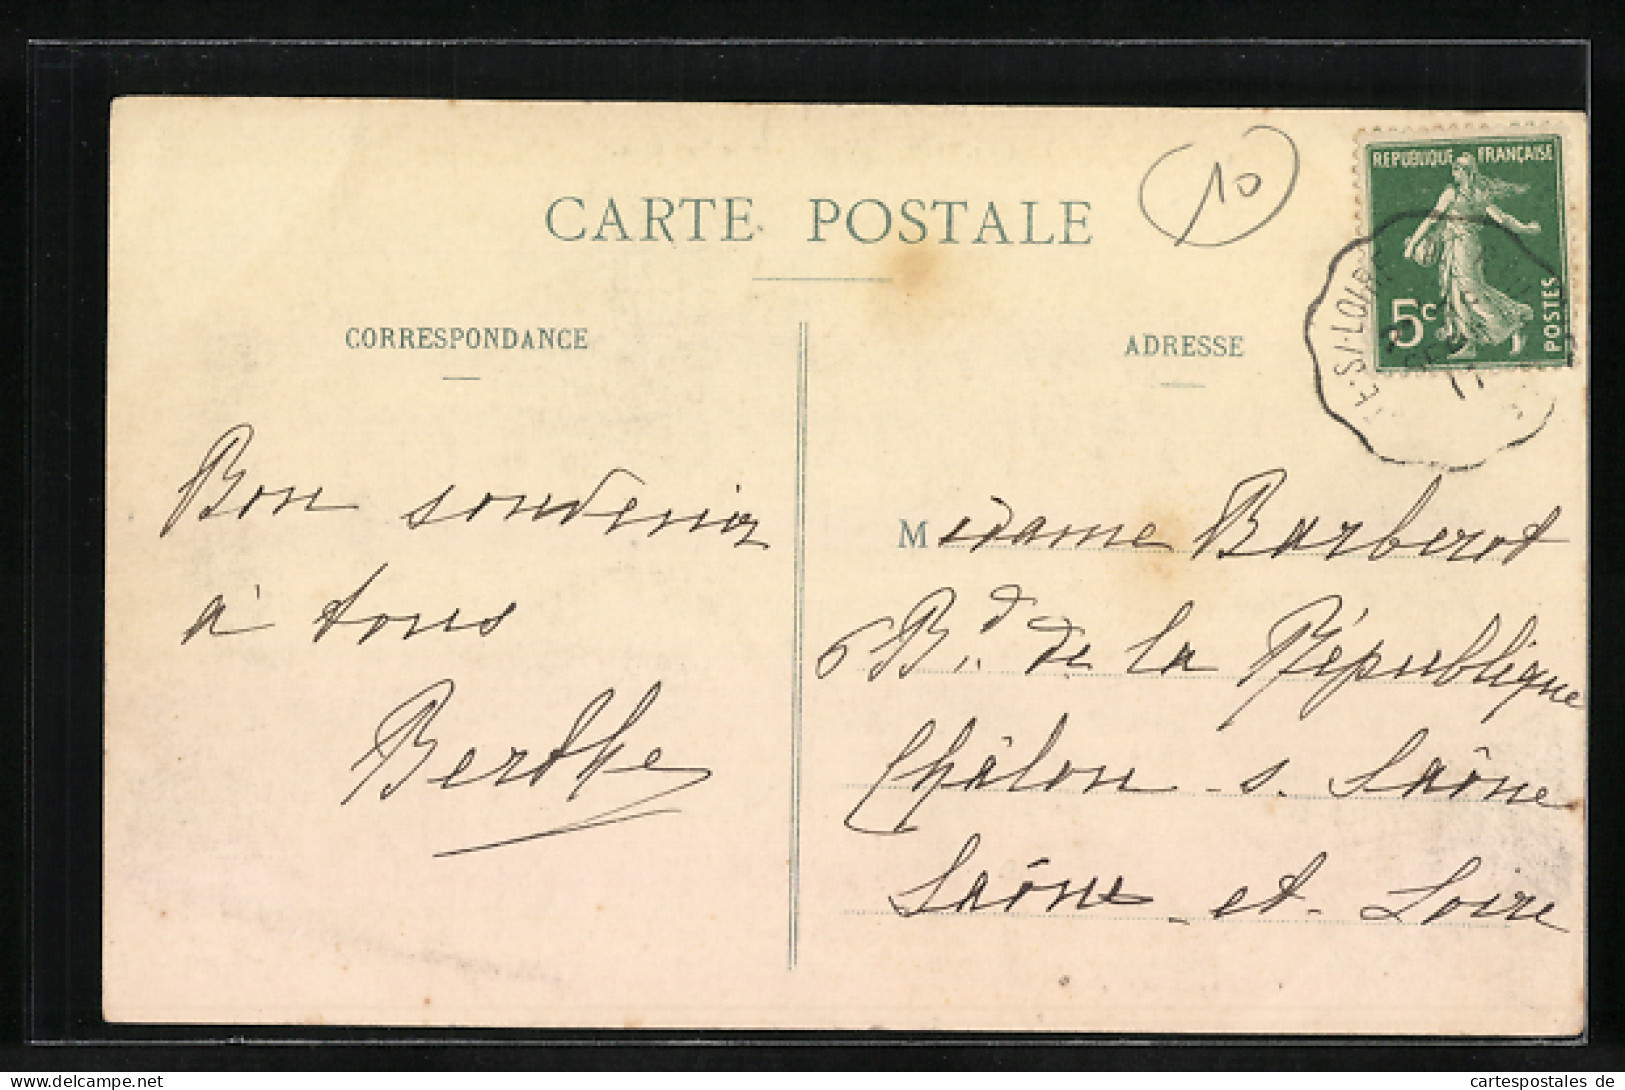 10
REPUBLIQUE FRANÇAISE
5c
POSTES
S/-LOIRE
CARTE POSTALE
CORRESPONDANCE
ADRESSE
Bon souvenir
à tous
Berthe
Madame Barberot
6 Bd. de la République
Châlon - s. Saône
Saône - et - Loire
delcampe.net
cartespostales de